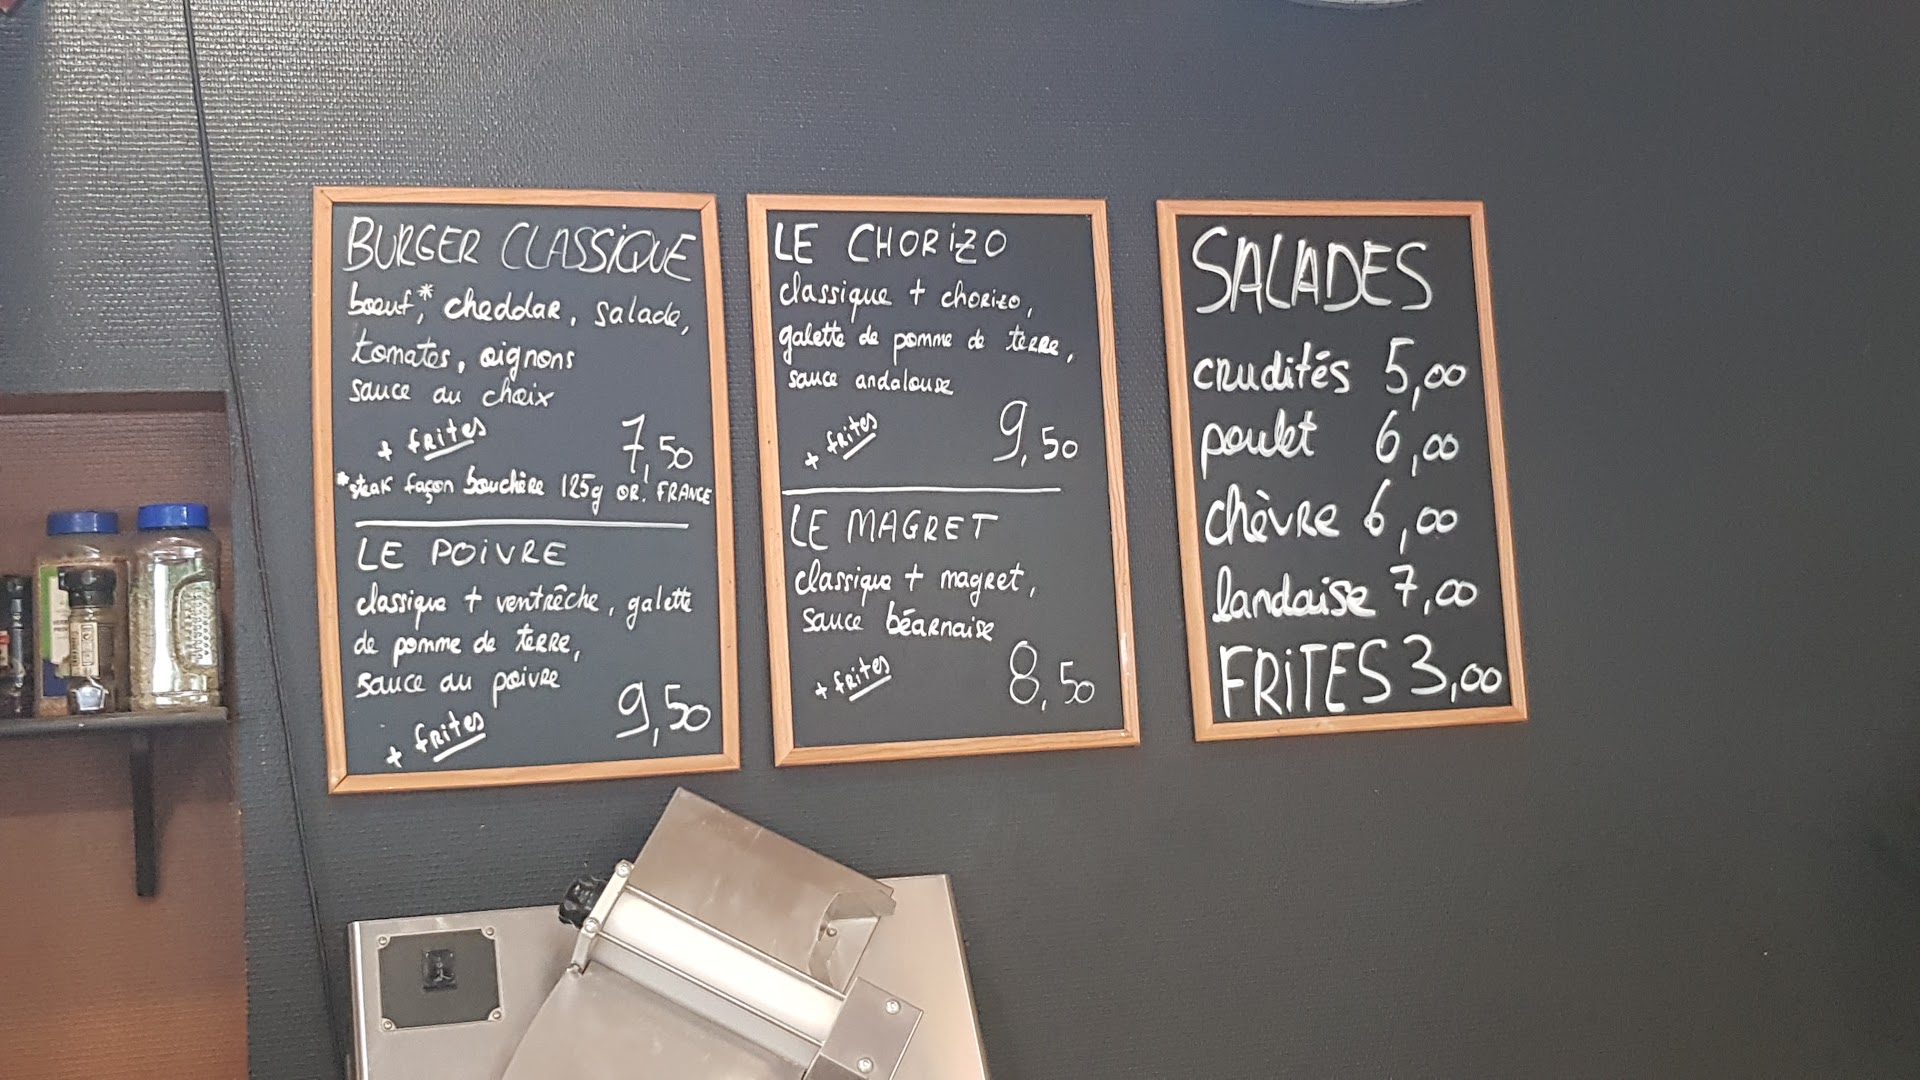 BURGER CLASSIQUE
bœuf*, cheddar, salade,
tomates, oignons
sauce au choix
+ frites
7,50
*steak façon bouchère 125g OR. FRANCE
LE POIVRE
classique + ventrêche, galette
de pomme de terre,
sauce au poivre
+ frites
9,50
LE CHORIZO
classique + chorizo,
galette de pomme de terre,
sauce andalouse
+ frites
9,50
LE MAGRET
classique + magret,
sauce béarnaise
+ frites
8,50
SALADES
crudités 5,00
poulet 6,00
chèvre 6,00
landaise 7,00
FRITES 3,00